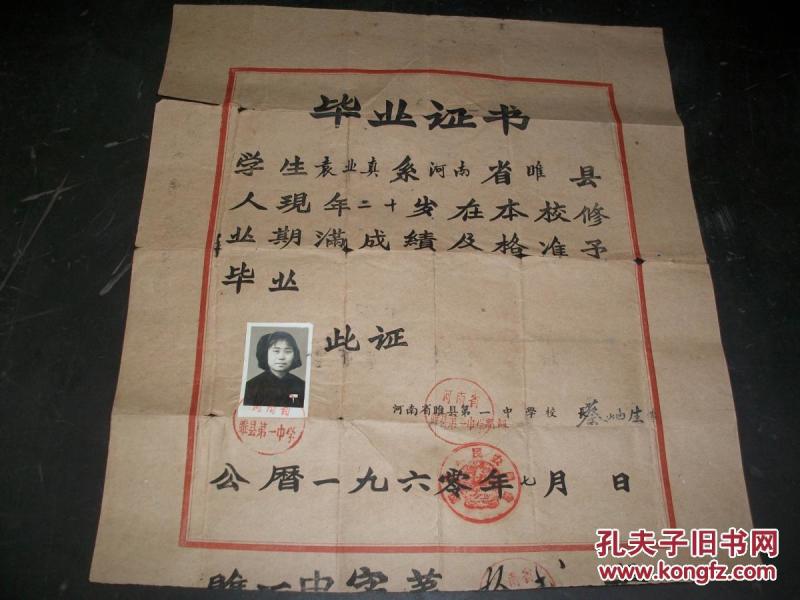 毕业证书
学生袁业真系河南省睢县
人現年二十岁在本校修
业期滿成績及格准予
毕业
此证
河南省
睢县第一中学
河南省
河南省睢县第一中學校 蔡
公曆一九六零年七月 日
睢一中字第
孔夫子旧书网
www.kongfz.com